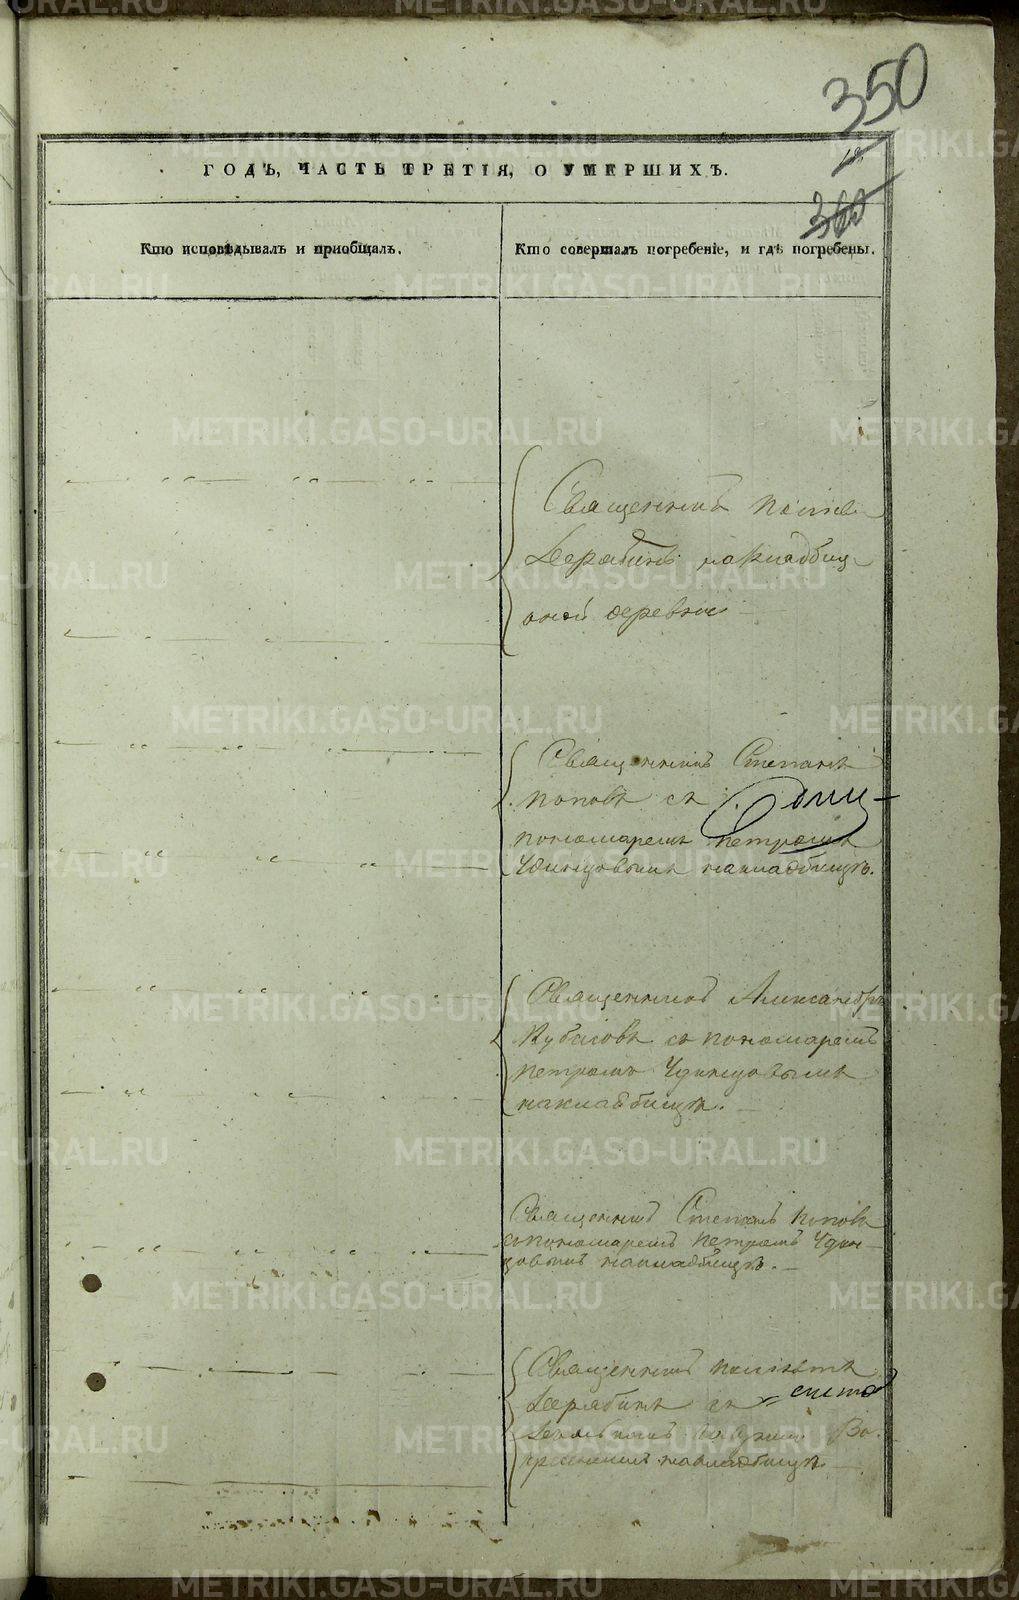 350
ГОДЪ, ЧАСТЬ ТРЕТІЯ, О УМЕРШИХЪ.
360
Кто исповѣдывалъ и пріобщалъ.
Кто совершалъ погребеніе, и гдѣ погребены.
Священникъ
Дерябинъ накладбищ
деревни
Священникъ Степанъ
Поповъ съ
пономаремъ Петромъ
Удинцовымъ накладбищѣ.
Священникъ Александръ
Кубасовъ съ пономаремъ
Петромъ Удинцовымъ
накладбищѣ.
Священникъ Степанъ Поповъ
съпономаремъ Петромъ Удин-
цовымъ накладбищѣ.
Священникъ
Дерябинъ съ
накладбищѣ
METRIKI.GASO-URAL.RU